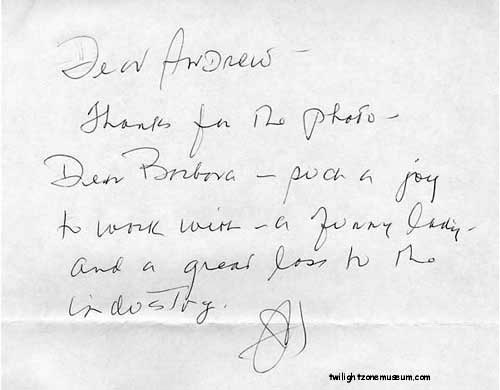 Dear Andrew -
Thanks for the photo -
Dear Barbara - such a joy
to work with - a funny lady -
and a great loss to the
industry.
twilightzonemuseum.com